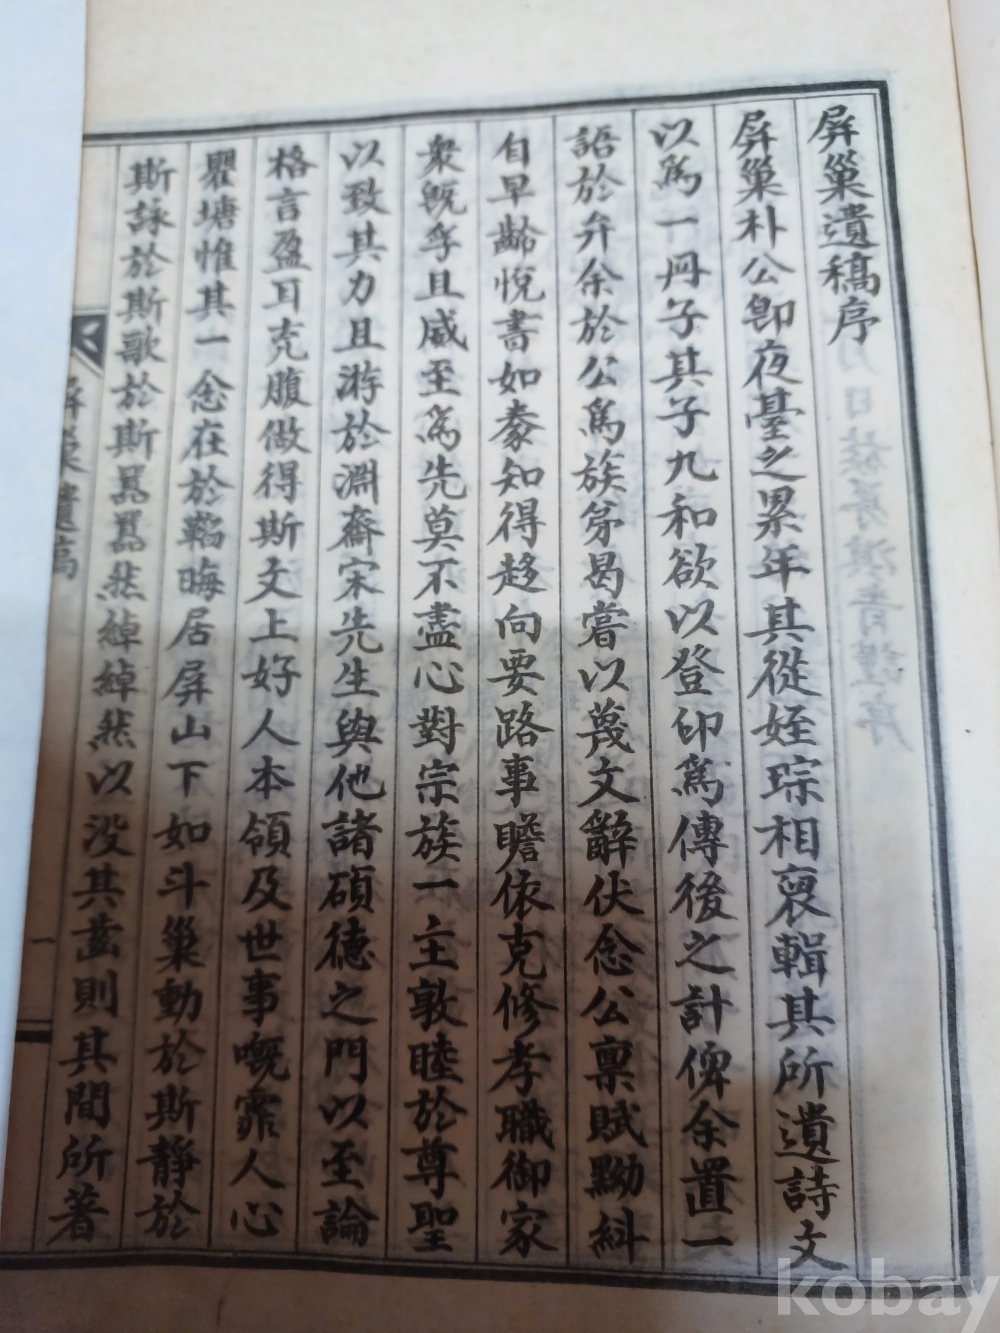 屛巢遺稿序
屛巢朴公卽夜臺之累年其從姪琮相裒輯其所遺詩文
以爲一冊子其子九和欲以登印爲傳後之計俾余置一
語於弁余於公爲族弟曷嘗以蔑文辭伏念公禀賦黝糾
自早齡悅書如豢知得趍向要路事瞻依克修孝職御家
衆旣孚且威至爲先莫不盡心對宗族一主敦睦於尊聖
以致其力且游於淵齋宋先生與他諸碩德之門以至論
格言盈耳充腹做得斯文上好人本領及世事嘅霏人心
瞿塘惟其一念在於韜晦居屛山下如斗巢動於斯靜於
斯詠於斯歌於斯嚣嚣然綽綽然以没其齒則其間所著
屛巢遺稿
一
kobay